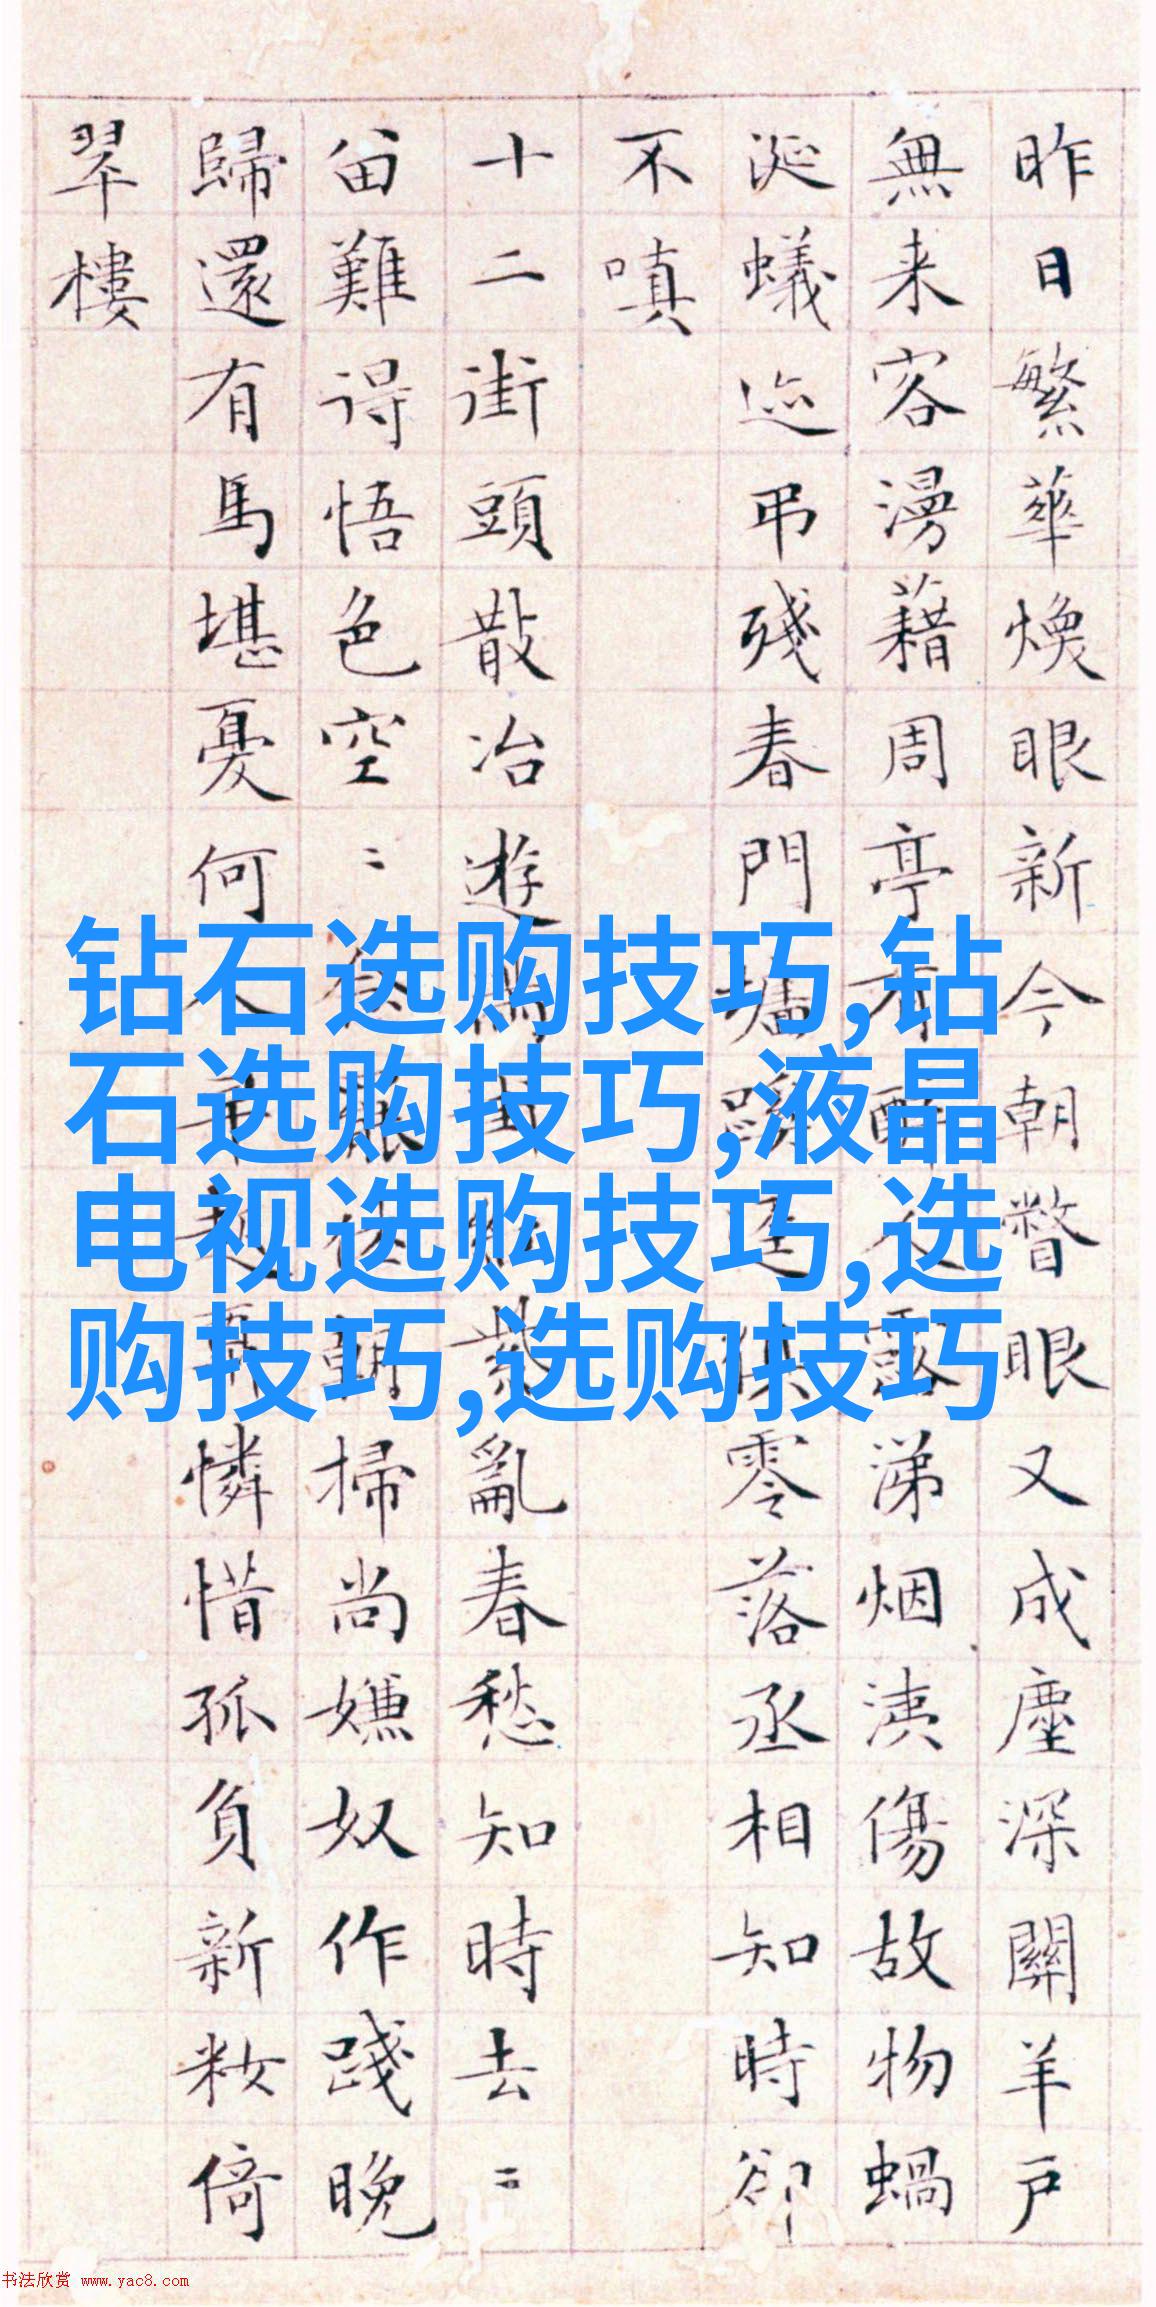 昨日繁華煥眼新今朝瞥眼又成塵深關羊戶
無来客漫藉周亭有醉人露涕烟洟傷故物蝸
涎蟻迹弔殘春門墻蹊徑俱零落丞相知時卻
不嗔
十二街頭散冶遊滿紫亂春愁知時去〻
留難得悟色空〻掃尚嫌奴作踐晚
歸還有馬堪憂何人憐惜孤負新妝倚
翠樓
钻石选购技巧,钻
石选购技巧,液晶
电视选购技巧,选
购技巧,选购技巧
书法欣赏 www.yac8.com